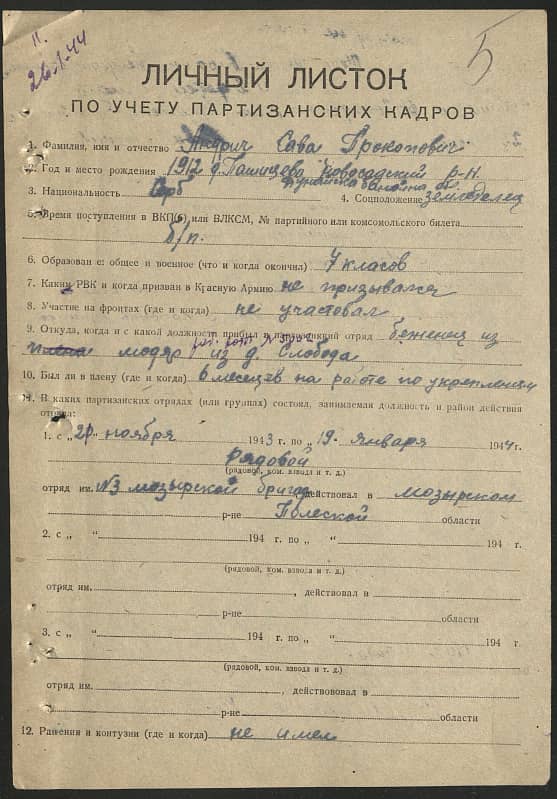 26-1-44
5
ЛИЧНЫЙ ЛИСТОК
ПО УЧЕТУ ПАРТИЗАНСКИХ КАДРОВ
1. Фамилия, имя и отчество Андрич Сава Прокопович
2. Год и место рождения 1912 д. Пашицево Новосадский р-н.
Дунайска бановина
3. Национальность Серб 4. Соцположение земледелец
5. Время поступления в ВКП(б) или ВЛКСМ, № партийного или комсомольского билета
б/п.
6. Образование: общее и военное (что и когда окончил) 7 класов
7. Каким РВК и когда призван в Красную Армию не призывался
8. Участие на фронтах (где и когда) не участвовал
9. Откуда, когда и с какой должности прибыл в партизанский отряд беженец из
модяр из д. Слобода
10. Был ли в плену (где и когда) 6 месецев на работе по укреплении
11. В каких партизанских отрядах (или группах) состоял, занимаемая должность и район действия
отряда:
1. с „21“ ноября 1943 г. по „19“ января 1944 г.
рядовой
(рядовой, ком. взвода и т. д.)
отряд им. №3 мозырской бригад действовал в мозырском
р-не Полеской области
2. с „ “ 194 г. по „ “ 194 г.
(рядовой, ком. взвода и т. д.)
отряд им. , действовал в
р-не области
3. с „ “ 194 г. по „ “ 194 г.
(рядовой, ком. взвода и т. д.)
отряд им. , действововал в
р-не области
12. Ранения и контузии (где и когда) не имел